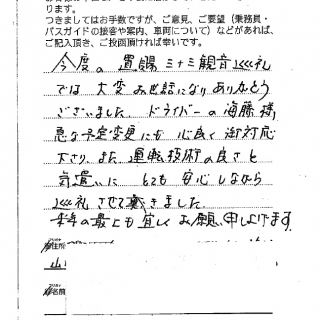 ります。
つきましてはお手数ですが、ご意見、ご要望（乗務員・
バスガイドの接客や案内、車両について）などがあれば、
ご記入頂き、ご投函頂ければ幸いです。
今度の 置賜三十三観音巡礼
では大変お世話になりありがとう
ございました。ドライバーの海藤様、
急な予定変更にも 心良く御対応
下さり、また運転技術の良さと
気遣いに とても 安心しながら
巡礼させて頂きました。
宜しくお願い申し上げます
ご住所
山
お名前